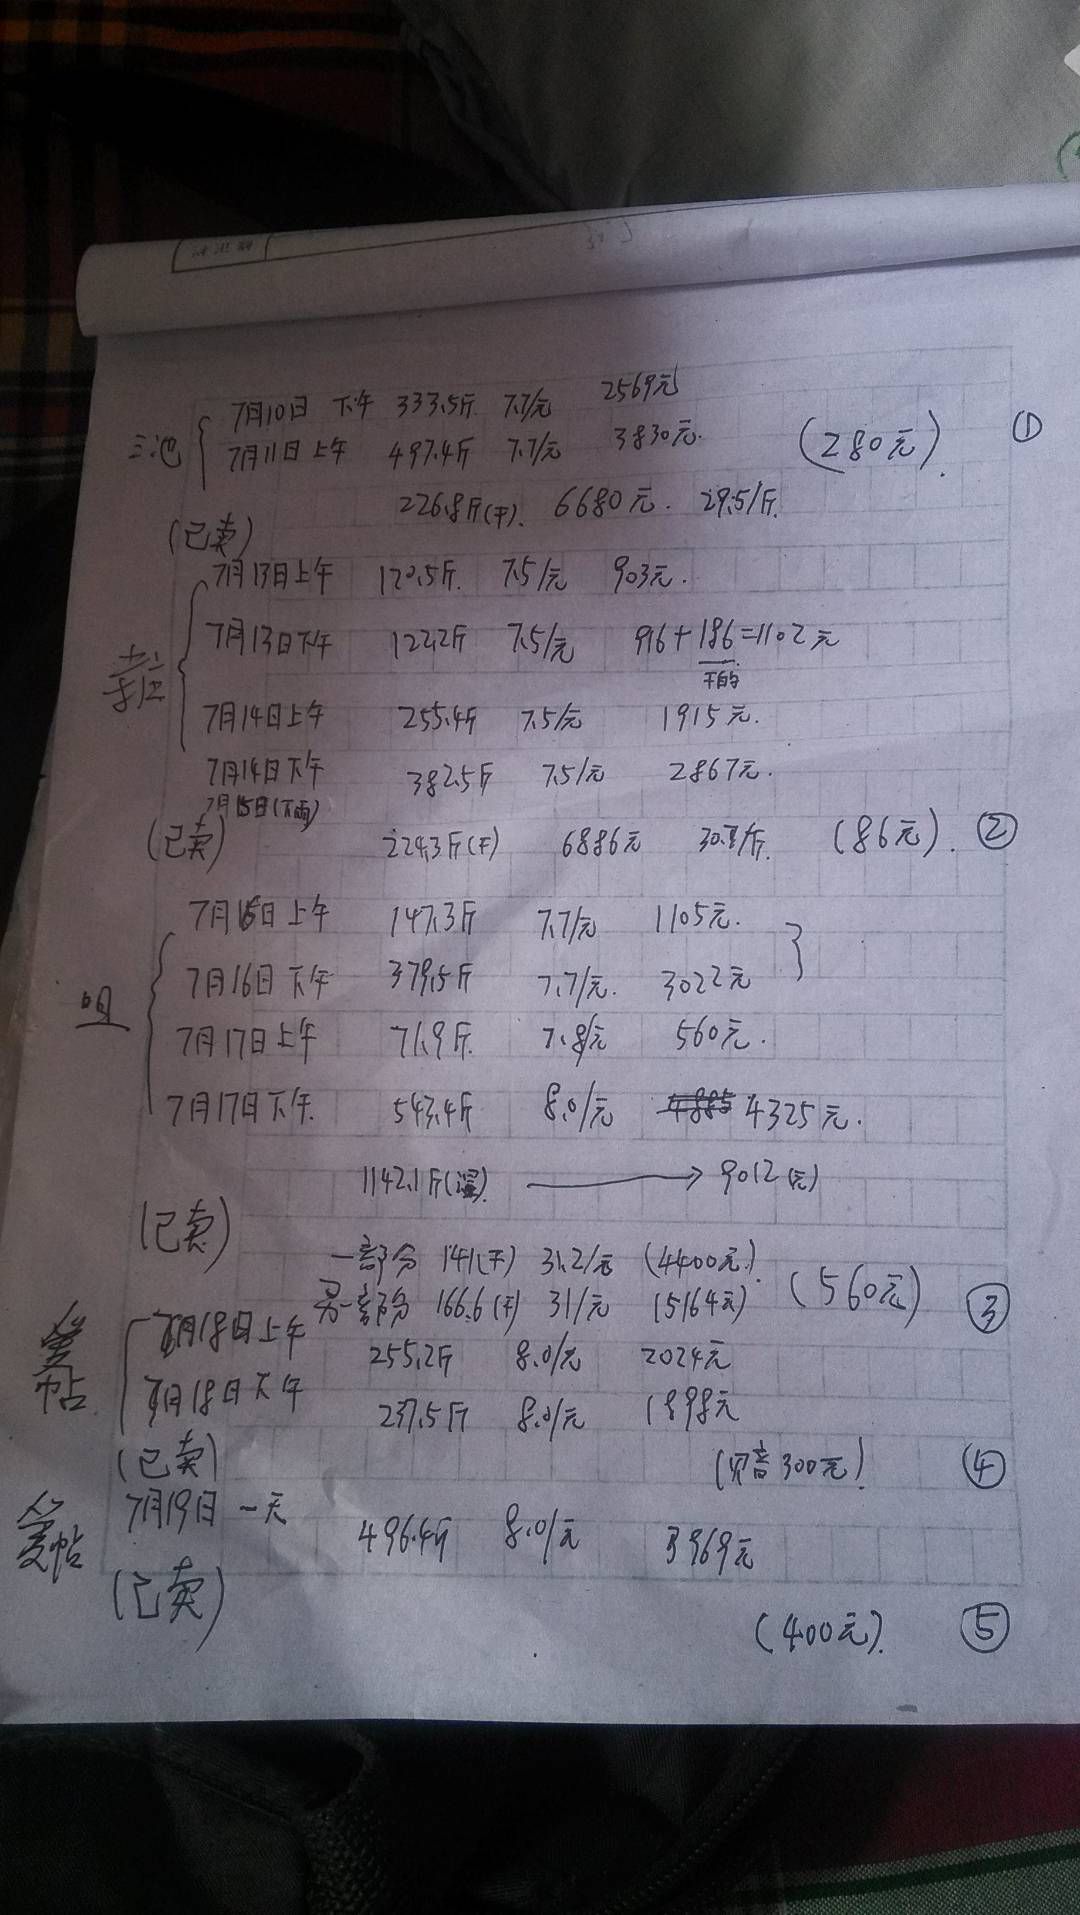 三池 7月10日 下午 333.5斤 7.7/元 2569元
7月11日上午 497.4斤 7.7/元 3830元. (280元). ①
226.8斤(干). 6680元. 29.5/斤.
(已卖)
7月13日上午 120.5斤. 7.5/元 903元.
7月13日下午 122.2斤 7.5/元 916+186=1102元
干的
7月14日上午 255.4斤 7.5/元 1915元.
7月14日下午 382.5斤 7.5/元 2867元.
7月15日(下雨)
(已卖) 224.3斤(干) 6886元 30.7/斤. (86元). ②
7月16日上午 147.3斤 7.7/元 1105元.
7月16日下午 379.5斤 7.7/元. 3022元
7月17日上午 71.9斤. 7.8/元 560元.
7月17日下午. 543.4斤 8.0/元 4885 4325元.
1142.1斤(湿). → 9012(元)
(已卖)
一部分 141(干) 31.2/元 (4400元).
另一部分 166.6(干) 31/元 (5164元) (560元) ③
7月18日上午 255.2斤 8.0/元 2024元
7月18日下午 237.5斤 8.0/元 1898元
(已卖) (300元) ④
7月19日 一天 496.4斤 8.0/元 3969元
(已卖)
(400元). ⑤